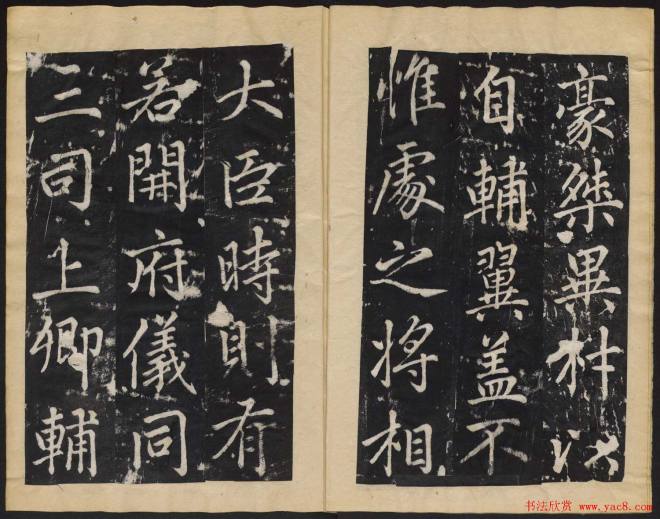 豪桀畢以
自輔翼蓋不
惟處之將相
大臣時則有
若開府儀同
三司上卿輔
书法欣赏 www.yac8.com